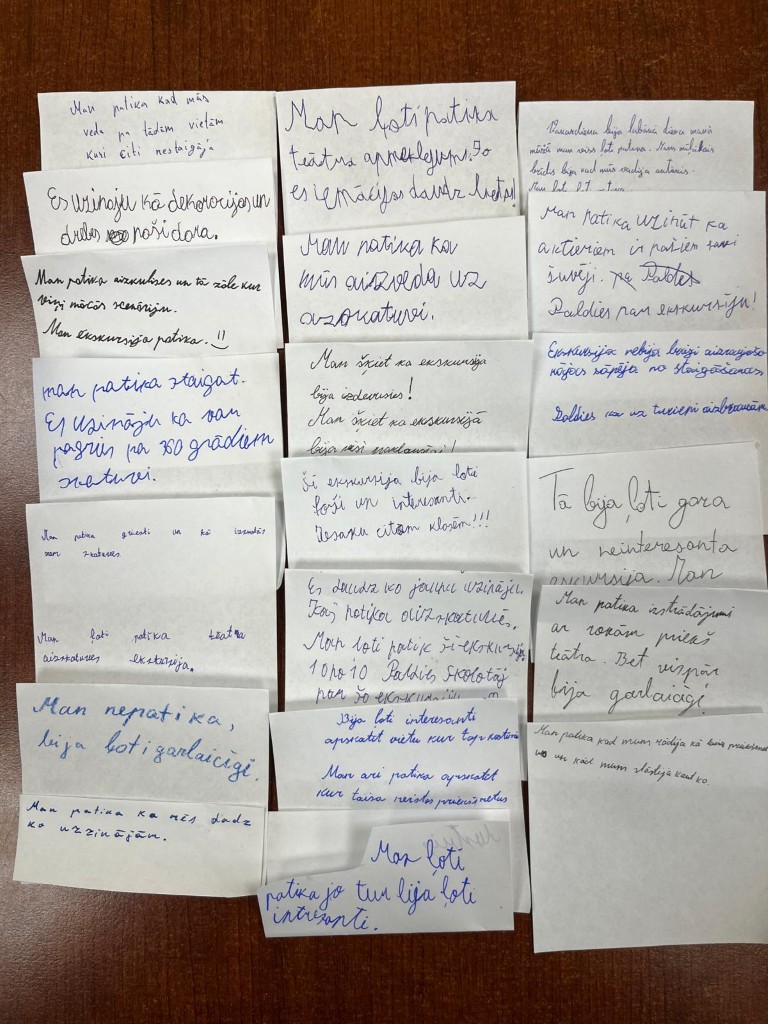 Man patika kad mūs
veda pa tādām vietām
kuri citi nestaigāja
Es uzinaju kā dekorocijas un
drēbes paši dara.
Man patika aizkulises un tā zāle kur
viņi mācās scenāriju.
Man ekskursija patika. :)
man patika staigat.
Es uzināju ka var
pagriēs pa 360 grādiem
skatuvi.
Man patika griesti un kā izmatās
zem skatuves.
Man ļoti patika teatra
aizskatuves ekskursija.
Man nepatika,
bija ļoti garlaicīgi.
Man patika ka mēs dadz
ko uzzinājām.
Man ļoti patika
teātra apmeklejum. Jo
es iemācijos daudz lietas!
Man patika ka
mūs aizveda uz
aizskatuvi.
Man šķiet ka ekskursija
bija izdevusies!
Man šķiet ka ekskursijā
bija visi
Ši ekskursija bija ļoti
forši un interesanti.
Iesaku citām klasēm!!!
Es daudz ko jaunu uzināju.
Kas patika aizskatuvēs.
Man ļoti patik ši ekskursija
10 no 10 Paldies Skolotāj
par šo
Bija ļoti interesanti
apskatit vietu kur top kostīmi
Man ari patika apskatit
kur taisa neistos priekšmetus
Man ļoti
patika jo tur bija ļoti
intresanti.
Vakardiena bija labākā diena manā
mūžā man viss ļoti patika. Mans mīļākais
brīdis bija kad mūs vadīja
Man patika uzināt ka
aktieriem ir pašiem savi
šuvēji. Paldies
Paldies par ekskursiju!
Ekskursija nebija baigi aizraujoša
kājas sāpēja no staigāšanas
Paldies ka uz turieni aizbraucām
Tā bija ļoti gara
un neinteresanta
ekskursija. Man
Man patika izstrādājumi
ar rokām priekš
teātra. Bet vispār
bija garlaicīgi
Man patika kad mum rādija kā
un kad mum stāstija kaut ko.